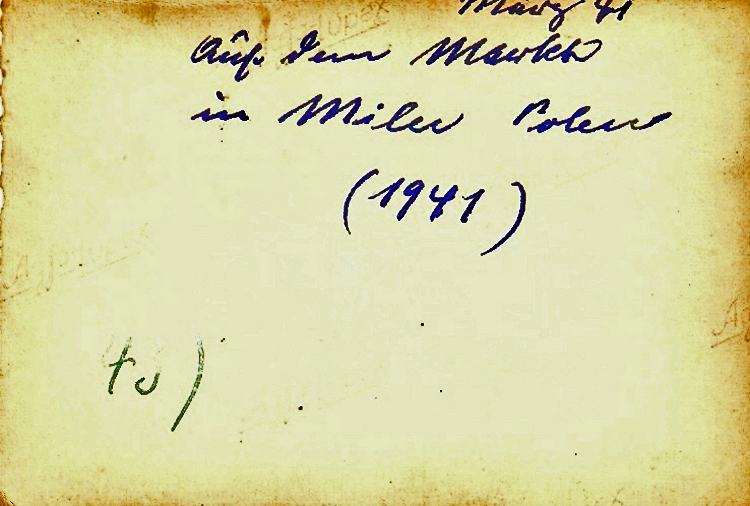 März 41
Auf dem Markt
in Miler Polen
(1941)
43)